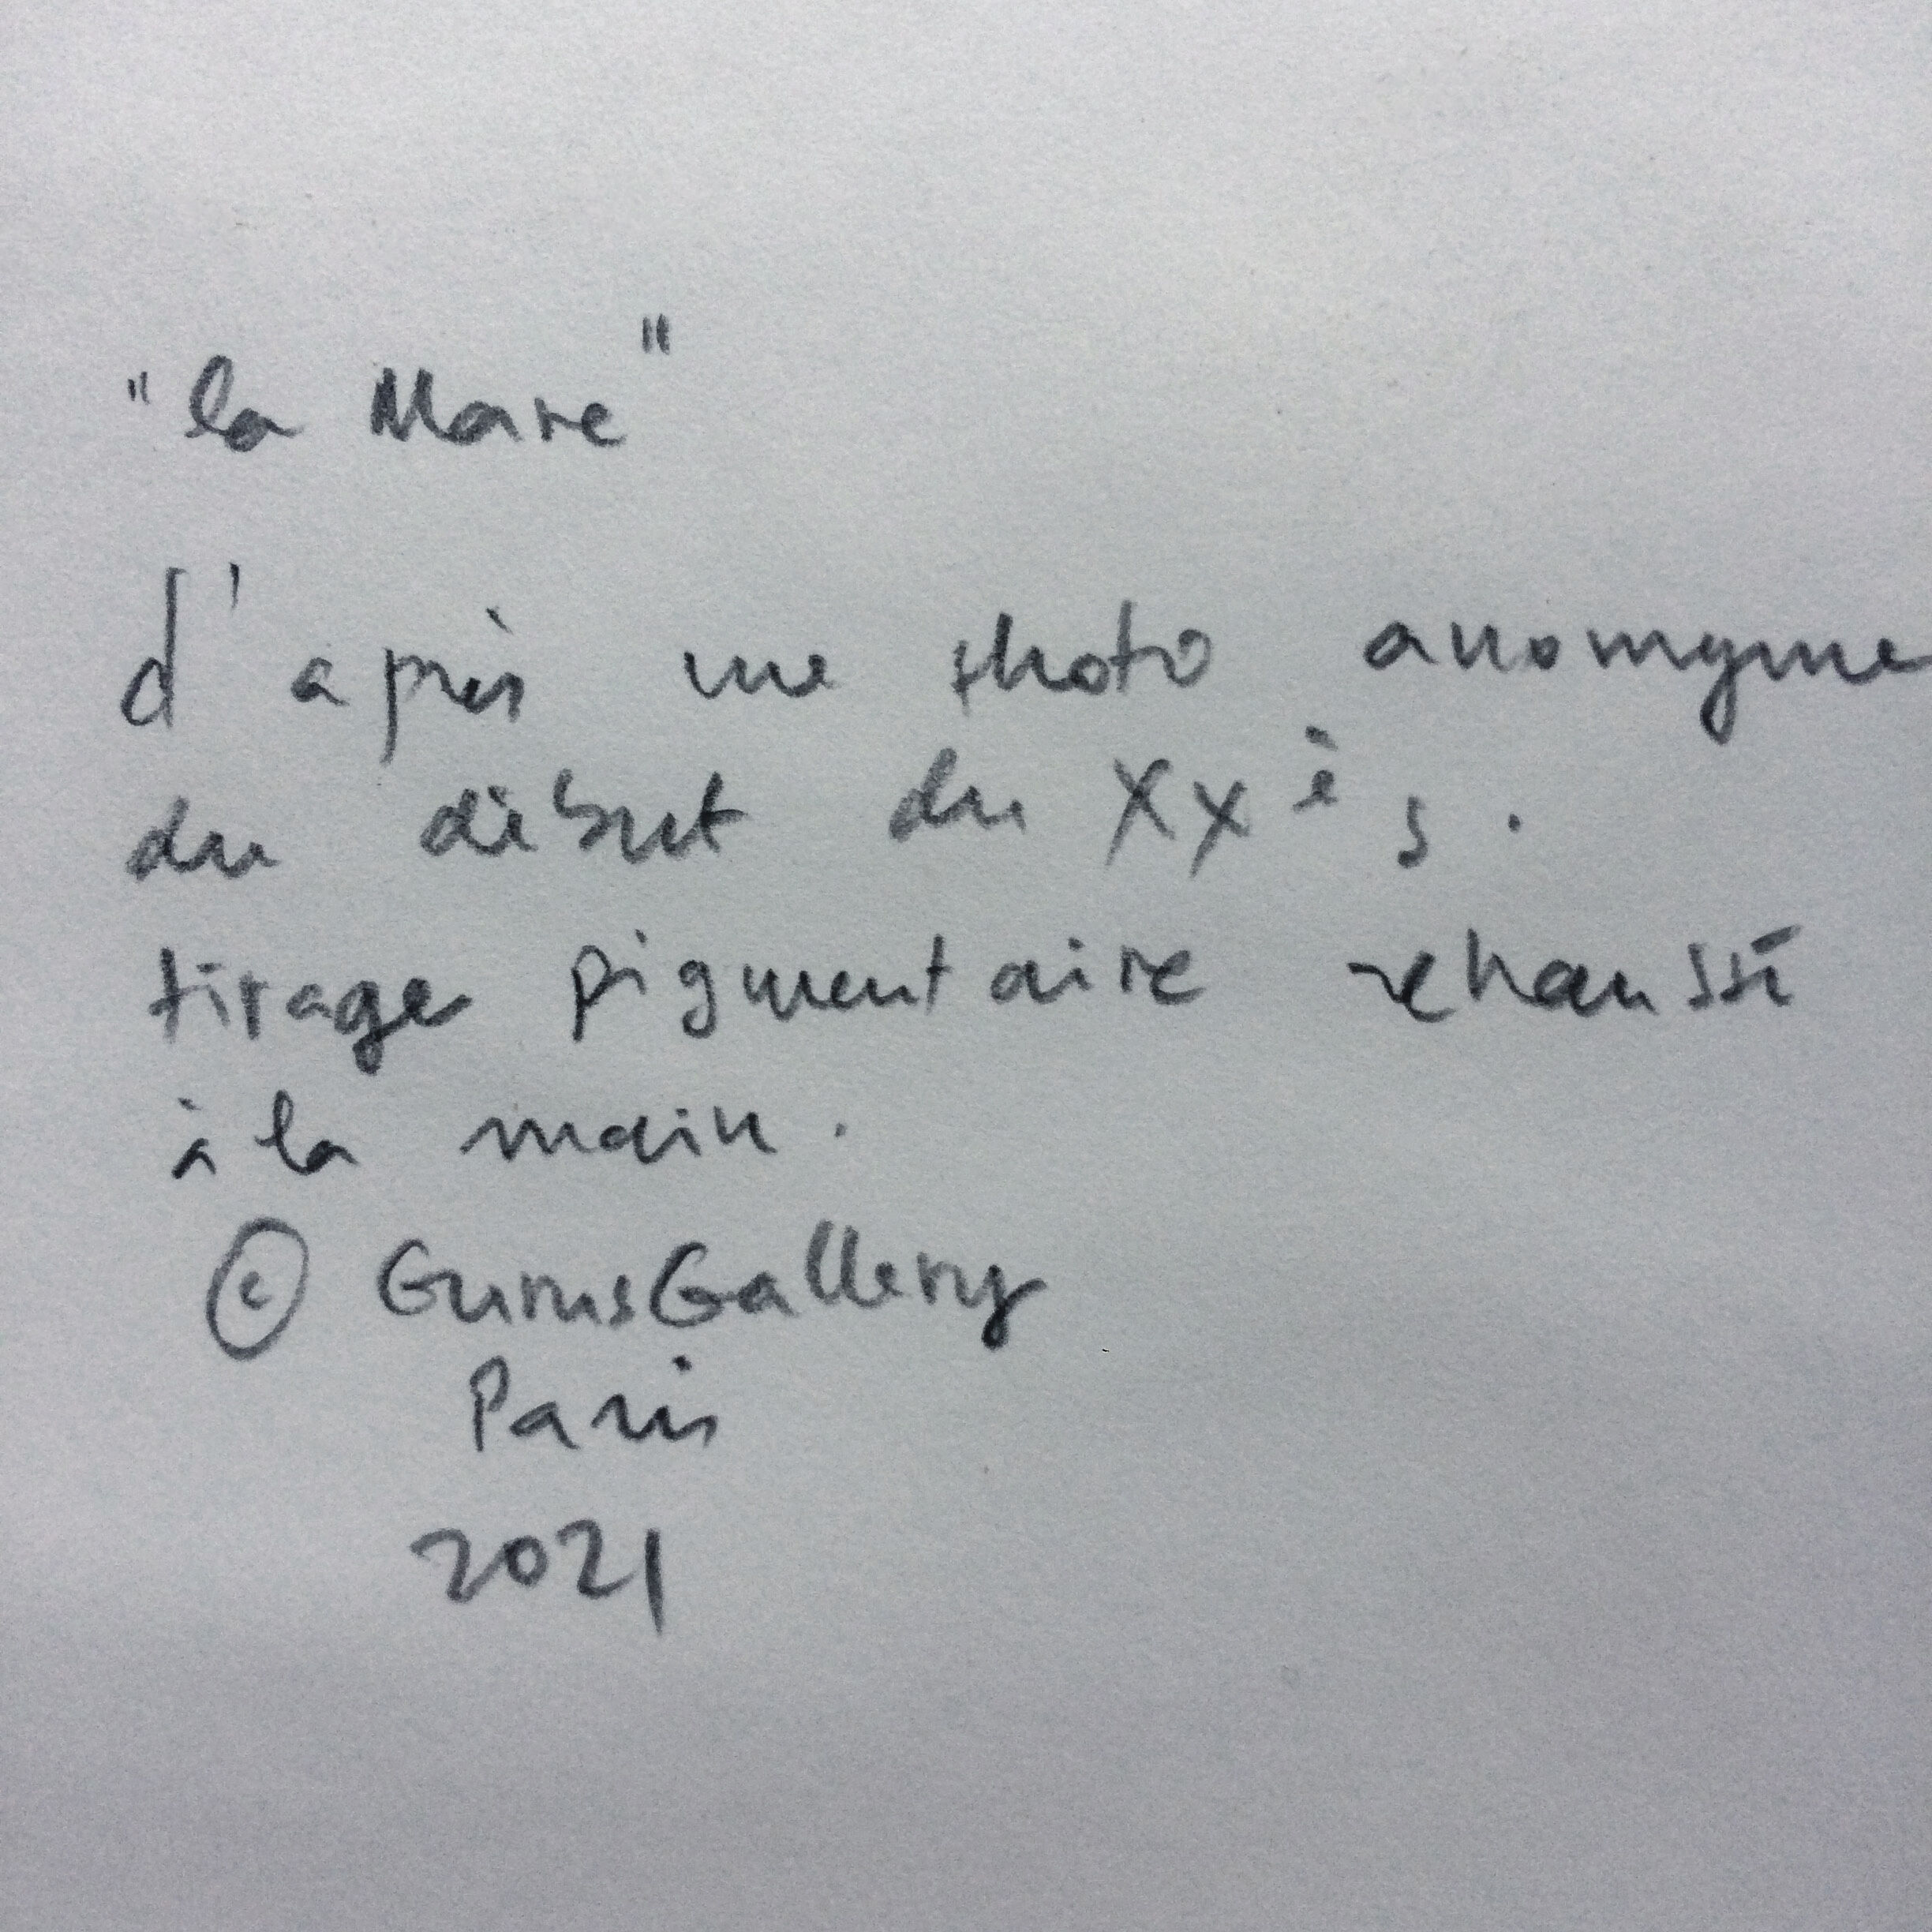 "la Mare"
d'après une photo anonyme
du début du XXè s.
tirage pigmentaire rehaussé
à la main.
© GurusGallery
Paris
2021